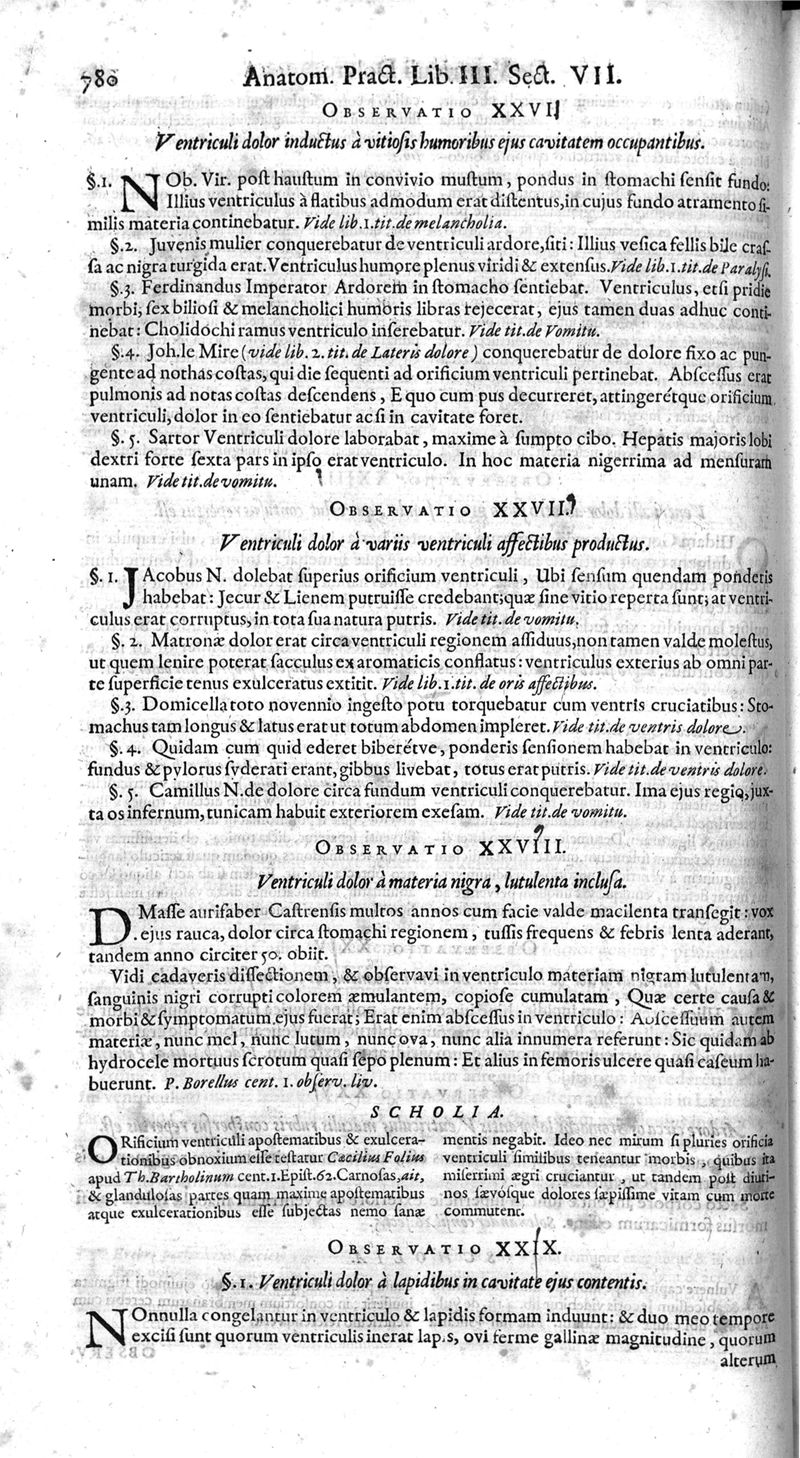 780 Anatom. Pract. Lib. III. Sect. VII.
OBSERVATIO XXVI
Ventriculi dolor inductus à vitiosis humoribus ejus cavitatem occupantibus.
§.1. NOb. Vir. post haustum in convivio mustum, pondus in stomachi sensit fundo:
Illius ventriculus à flatibus admodum erat distentus, in cujus fundo atramento si-
milis materia continebatur. Vide lib.1.tit.de melancholia.
§.2. Juvenis mulier conquerebatur de ventriculi ardore, siti: Illius vesica fellis bile cras-
sa ac nigra turgida erat. Ventriculus humore plenus viridi & extensus. Vide lib.1.tit.de Paralys.
§.3. Ferdinandus Imperator Ardorem in stomacho sentiebat. Ventriculus, etsi pridie
morbi, sex biliosi & melancholici humoris libras rejecerat, ejus tamen duas adhuc conti-
nebat: Cholidochi ramus ventriculo inserebatur. Vide tit.de Vomitu.
§.4. Joh. le Mire (vide lib. 2. tit. de Lateris dolore) conquerebatur de dolore fixo ac pun-
gente ad nothas costas, qui die sequenti ad orificium ventriculi pertinebat. Abscessus erat
pulmonis ad notas costas descendens, E quo cum pus decurreret, attingerétque orificium
ventriculi, dolor in eo sentiebatur ac si in cavitate foret.
§. 5. Sartor Ventriculi dolore laborabat, maxime à sumpto cibo. Hepatis majoris lobi
dextri forte sexta pars in ipso erat ventriculo. In hoc materia nigerrima ad mensuram
unam. Vide tit.de vomitu.
OBSERVATIO XXVII.
Ventriculi dolor à variis ventriculi affectibus productus.
§. 1. JACobus N. dolebat superius orificium ventriculi, Ubi sensum quendam ponderis
habebat: Jecur & Lienem putruisse credebant; quæ sine vitio reperta sunt; at ventri-
culus erat corruptus, in tota sua natura putris. Vide tit. de vomitu.
§. 2. Matronæ dolor erat circa ventriculi regionem assiduus, non tamen valde molestus,
ut quem lenire poterat sacculus ex aromaticis conflatus: ventriculus exterius ab omni par-
te superficie tenus exulceratus extitit. Vide lib.1.tit. de oris affectibus.
§.3. Domicella toto novennio ingesto potu torquebatur cum ventris cruciatibus: Sto-
machus tam longus & latus erat ut totum abdomen impleret. Vide tit.de ventris dolore.
§. 4. Quidam cum quid ederet biberétve, ponderis sensionem habebat in ventriculo:
fundus & pylorus syderati erant, gibbus livebat, totus erat putris. Vide tit.de ventris dolore.
§. 5. Camillus N. de dolore circa fundum ventriculi conquerebatur. Ima ejus regio, jux-
ta os infernum, tunicam habuit exteriorem exesam. Vide tit.de vomitu.
OBSERVATIO XXVIII.
Ventriculi dolor à materia nigra, lutulenta inclusa.
D. Masse aurifaber Castrensis multos annos cum facie valde macilenta transegit: vox
ejus rauca, dolor circa stomachi regionem, tussis frequens & febris lenta aderant,
tandem anno circiter 50. obiit.
Vidi cadaveris dissectionem, & observavi in ventriculo materiam nigram lutulentam,
sanguinis nigri corrupti colorem æmulantem, copiose cumulatam, Quæ certe causa &
morbi & symptomatum ejus fuerat; Erat enim abscessus in ventriculo: Abscessuum autem
materiæ, nunc mel, nunc lutum, nunc ova, nunc alia innumera referunt: Sic quidam ab
hydrocele mortuus scrotum quasi sepo plenum: Et alius in femoris ulcere quasi caseum ha-
buerunt. P. Borellus cent. 1. observ. liv.
SCHOLIA.
ORificium ventriculi apostematibus & exulcera-
tionibus obnoxium esse testatur Cæcilius Folius
apud Th. Bartholinum cent.1.Epist.62. Carnosas, ait,
& glandulosas partes quam maxime apostematibus
atque exulcerationibus esse subjectas nemo sanæ
mentis negabit. Ideo nec mirum si pluries orificia
ventriculi similibus teneantur morbis, quibus ita
miserrimi ægri cruciantur, ut tandem post diuti-
nos sævosque dolores sæpissime vitam cum morte
commutent.
OBSERVATIO XXIX.
§.1. Ventriculi dolor à lapidibus in cavitate ejus contentis.
NOnnulla congelantur in ventriculo & lapidis formam induunt: & duo meo tempore
excisi sunt quorum ventriculis inerat lapis, ovi ferme gallinæ magnitudine, quorum
alterum